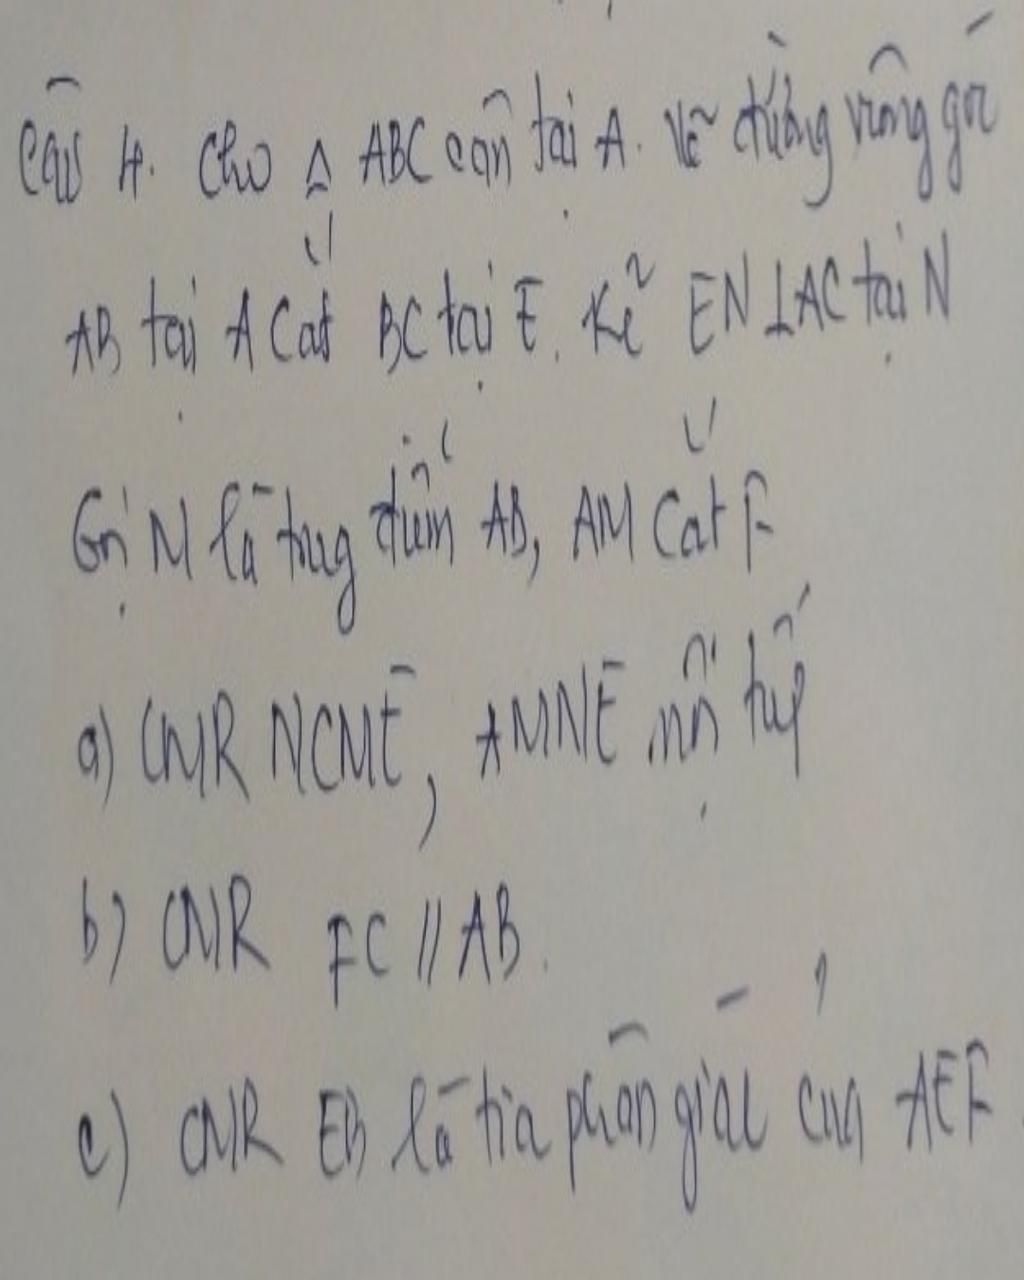 Câu 4. Cho Δ ABC cân tại A. Vẽ đường vuông góc
AB tại A cắt BC tại E. Kẻ EN ⊥ AC tại N
Gọi M là trung điểm AB, AM cắt F
a) CMR NCME, AMNE nội tiếp
b) CMR FC // AB.
c) CMR EB là tia phân giác của AEF.